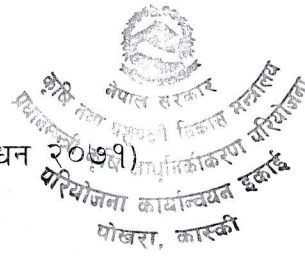 नेपाल सरकार
कृषि तथा पशुपन्छी विकास मन्त्रालय
प्रधानमन्त्री कृषि आधुनिकीकरण परियोजना
धन २०७१)
परियोजना कार्यान्वयन इकाई
पोखरा, कास्की